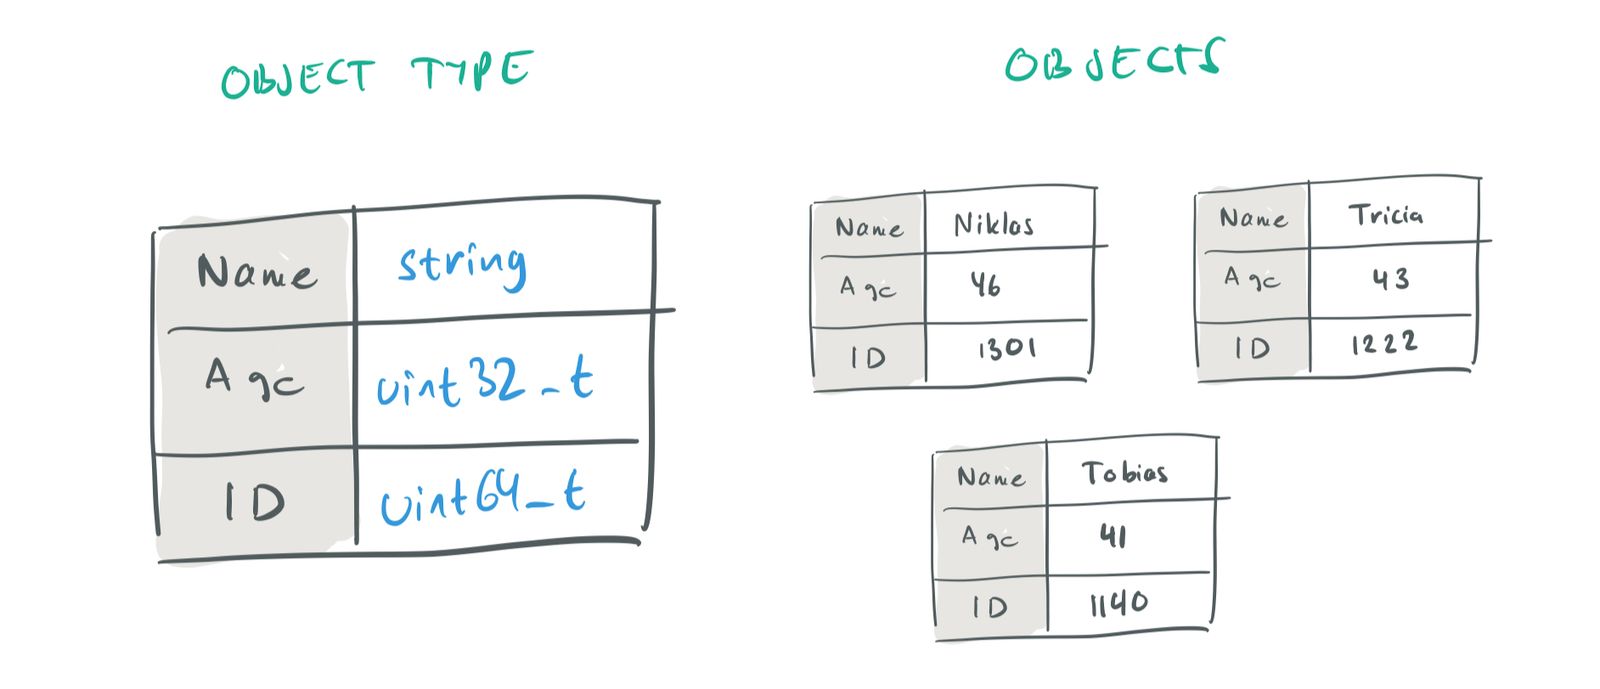 OBJECT TYPE
Name string
Age uint32_t
ID uint64_t
OBJECTS
Name Niklas
Age 46
ID 1301
Name Tricia
Age 43
ID 1222
Name Tobias
Age 41
ID 1140